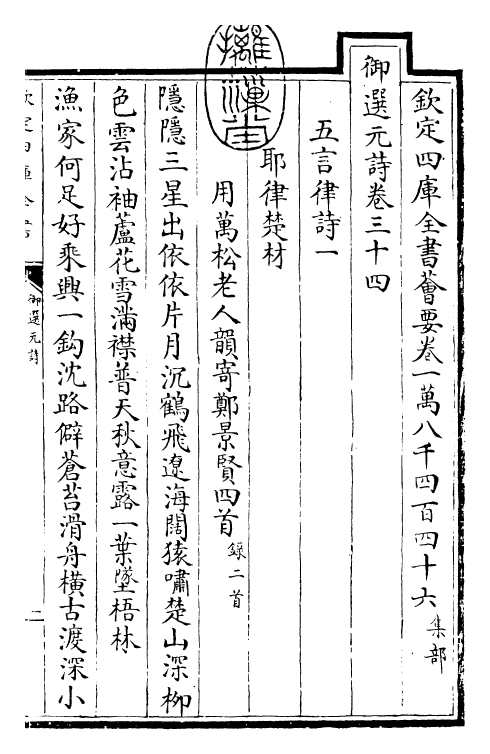 欽定四庫全書薈要卷一萬八千四百四十六集部
御選元詩卷三十四
五言律詩一
耶律楚材
用萬松老人韻寄鄭景賢四首錄二首
隱隱三星出依依片月沉鶴飛遼海闊猿嘯楚山深柳
色雲沾袖蘆花雪滿襟普天秋意露一葉墜梧林
漁家何足好乘興一鈎沈路僻蒼苔滑舟橫古渡深小
御選元詩